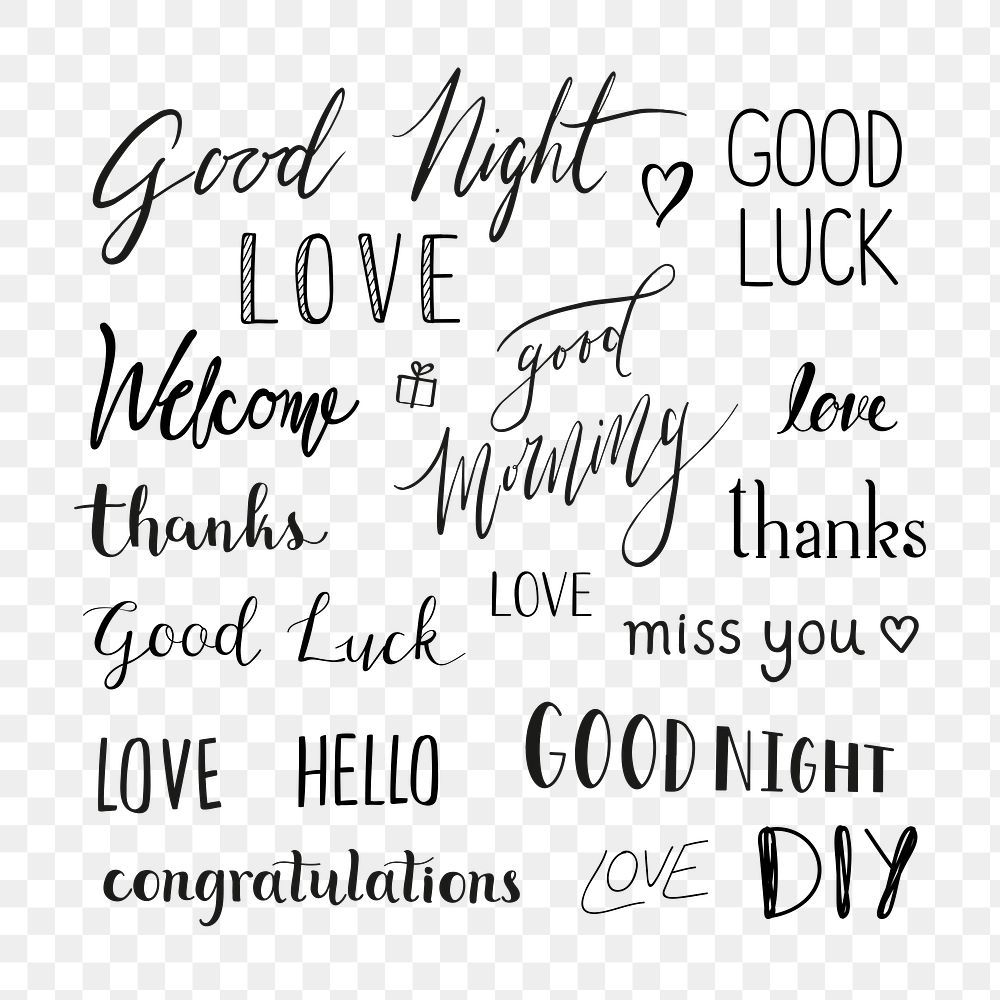 Good Night
GOOD
LUCK
LOVE
good
Morning
Welcome
love
thanks
thanks
LOVE
Good Luck
miss you
LOVE
HELLO
GOOD NIGHT
congratulations
LOVE
DIY